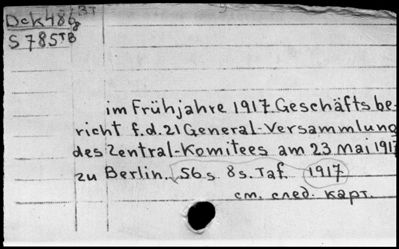 Dck486/8 BT
S 785TB
im Frühjahre 1917. Geschäftsbe-
richt f.d.21 General-Versammlung
des Zentral-Komitees am 23 Mai 1917
zu Berlin. 56s. 8s. Taf. 1917
см. след. карт.